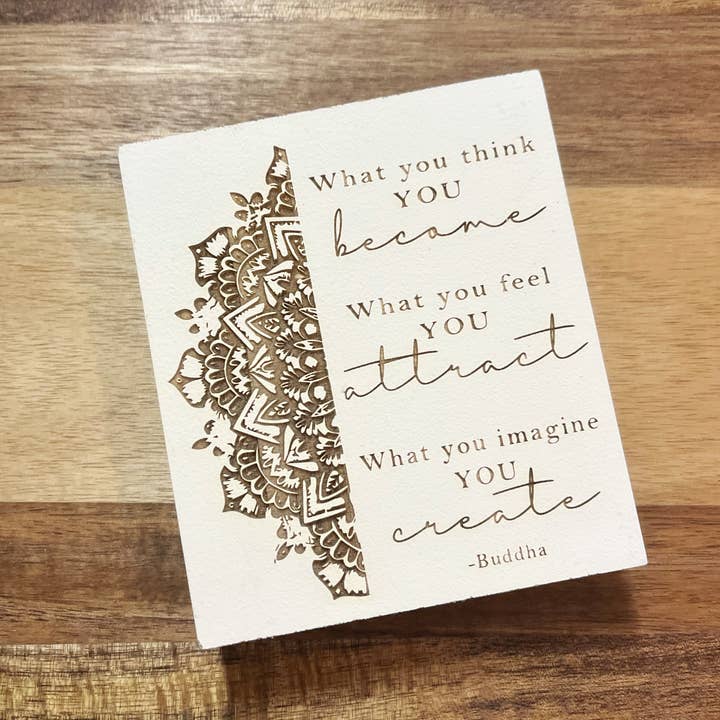 What you think
YOU
become
What you feel
YOU
attract
What you imagine
YOU
create
-Buddha